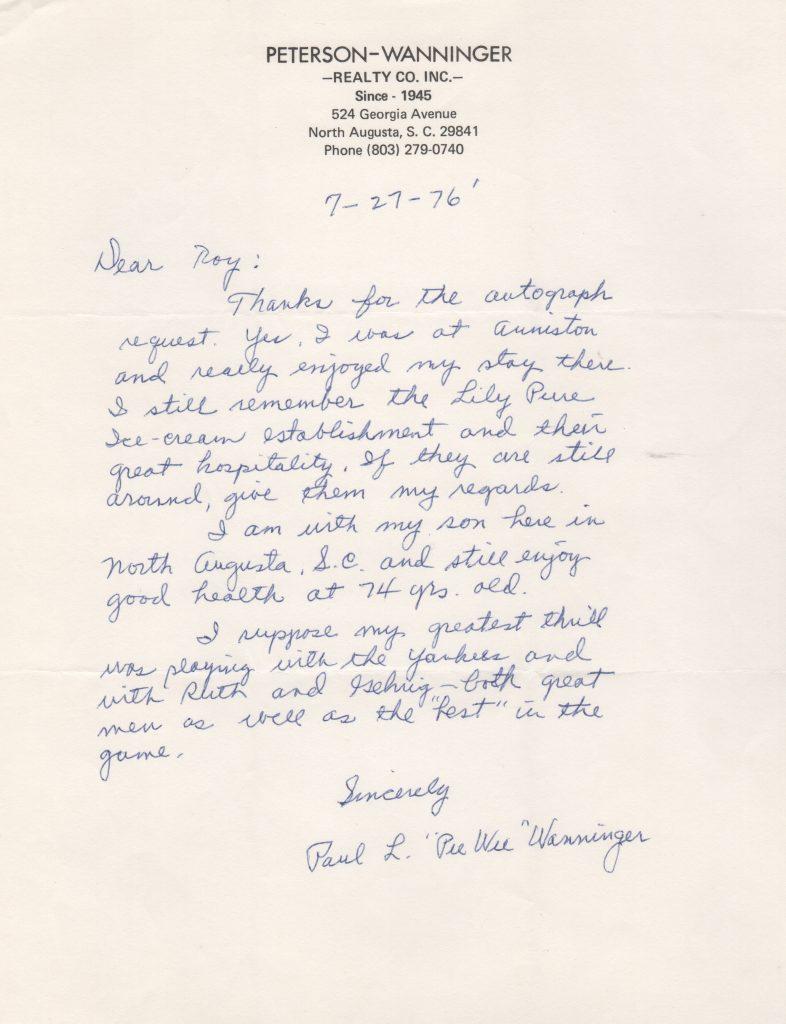 PETERSON-WANNINGER
-REALTY CO. INC.-
Since - 1945
524 Georgia Avenue
North Augusta, S. C. 29841
Phone (803) 279-0740
7-27-76'
Dear Roy:
Thanks for the autograph
request. Yes, I was at Anniston
and really enjoyed my stay there.
I still remember the Lily Pure
Ice-cream establishment and their
great hospitality. If they are still
around, give them my regards.
I am with my son here in
North Augusta, S.C. and still enjoy
good health at 74 yrs. old.
I suppose my greatest thrill
was playing with the Yankees and
with Ruth and Gehrig - both great
men as well as the "best" in the
game.
Sincerely
Paul L. "Pee Wee" Wanninger